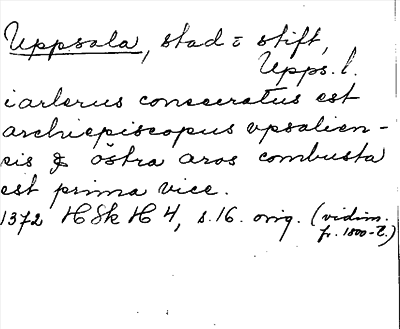 Uppsala, stad o stift,
Upps. l.
iarlerus consecratus est
archiepiscopus vpsalien-
sis & östra aros combusta
est prima vice.
1372 HSk H 4, s. 16. orig. (vidim.
fr. 1500-t.)